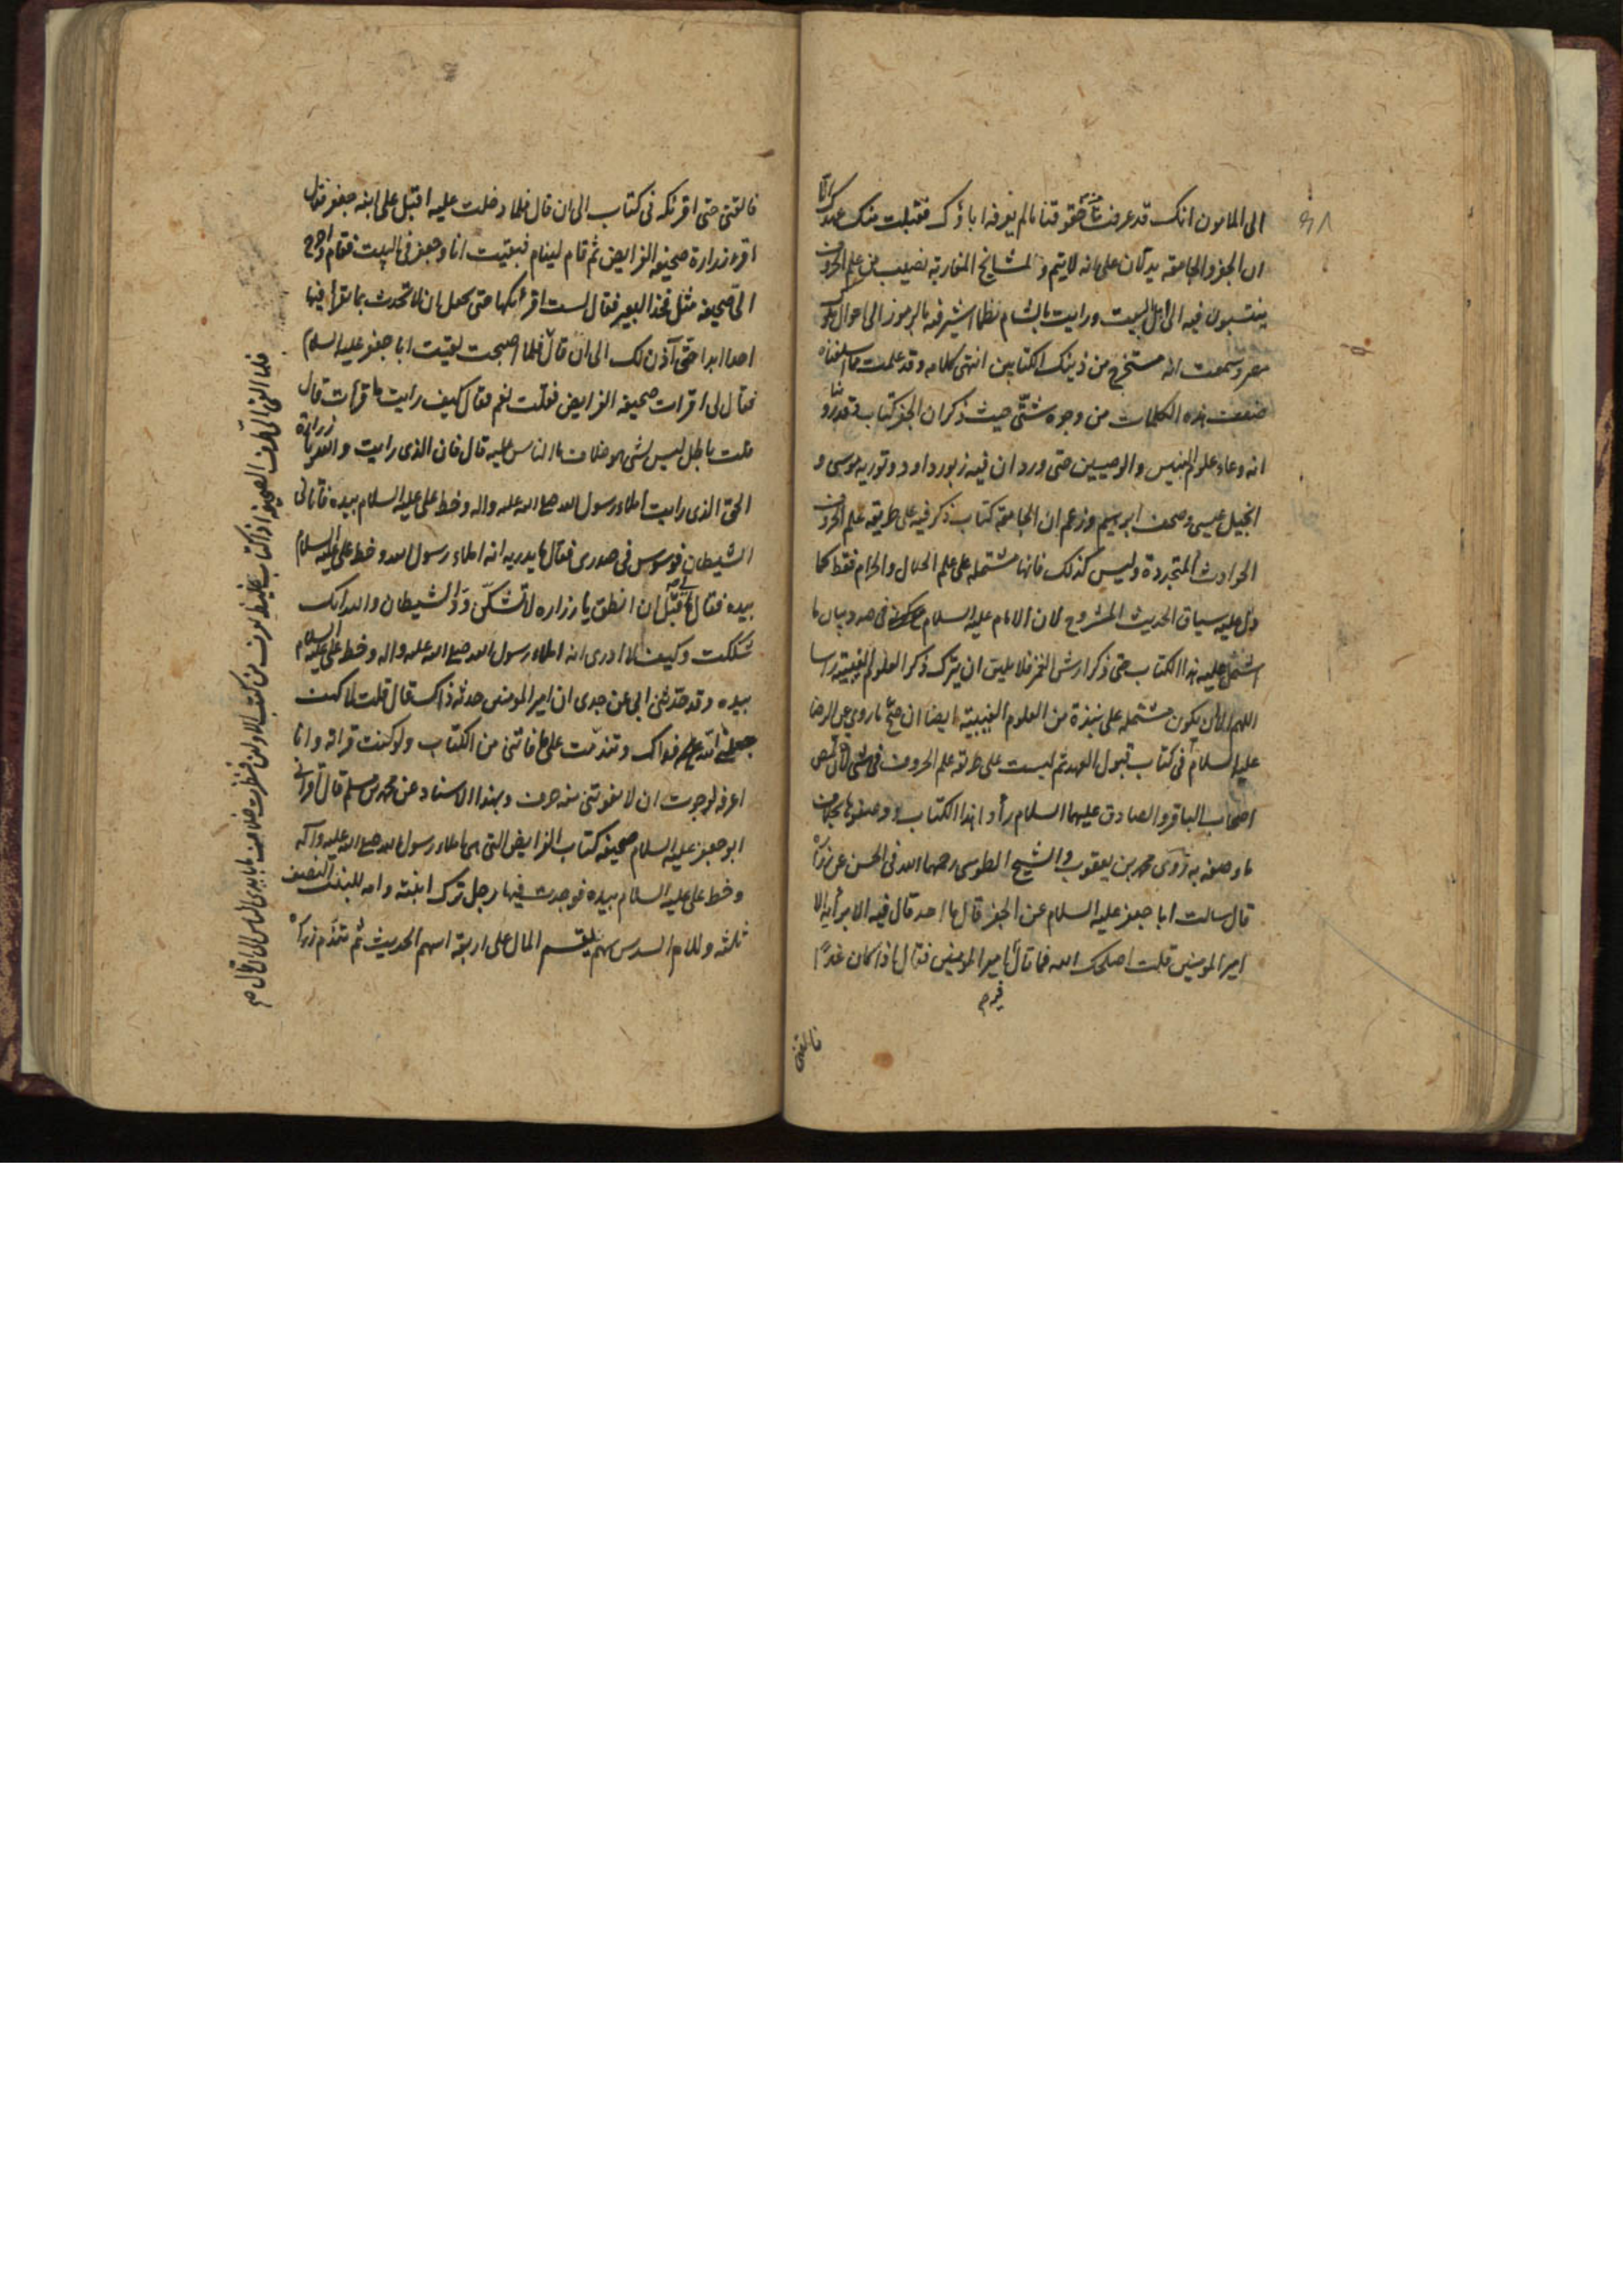 الى المامون انك قد عرفت من حقوقنا ما لم يعرفه اباؤك فقبلت منك عهدك الا
ان الجفر والجامعة يدلان على انه لا يتم ولمشايخ المغاربة نصيب من علم الحروف
ينتسبون فيه الى اهل البيت ورايت بالشام نظما اشير فيه بالرموز الى احوال ملوك
مصر وسمعت انه مستخرج من ذينك الكتابين انتهى كلامه وقد علمت مما اسلفناه
ضعف هذه الكلمات من وجوه شتى حيث ذكر ان الجفر كتاب وقد روينا
انه وعاء علوم النبيين والوصيين حتى ورد ان فيه زبور داود وتورية موسى و
انجيل عيسى وصحف ابرهيم وزعم ان الجامعة كتاب ذكر فيه على طريقة علم الحروف
الحوادث المتجددة وليس كذلك فانها مشتملة على علم الحلال والحرام فقط كما
دل عليه سياق الحديث المشروح لان الامام عليه السلام في صدد بيان ما
اشتمل عليه هذا الكتاب حتى ذكر ارش الخمر فلا يليق ان يترك ذكر العلوم الغيبية راسا
اللهم الا ان يكون مشتملة على نبذة من العلوم الغيبية ايضا ان صح ما روي عن الرضا
عليه السلام في كتاب قبول العهد ثم ليست على طريقة علم الحروف في شئ لان بعض
اصحاب الباقر والصادق عليهما السلام رأوا هذا الكتاب ووصفوها بخلاف
ما وصفه به روى محمد بن يعقوب والشيخ الطوسي رحمهما الله في الحسن عن زرارة
قال سالت ابا جعفر عليه السلام عن الجفر قال ما احد قال فيه الا برأيه الا
امير المومنين قلت اصلحك الله فما قال امير المومنين فقال اذا كان غدًا
فالقني
فالقني حتى اقرئكه في كتاب الى ان قال فلما دخلت عليه اقبل على ابنه جعفر فقال
اقرء زرارة صحيفة الفرايض ثم قام لينام فبقيت انا وجعفر في البيت فقام واخرج
الى صحيفة مثل فخذ البعير فقال لست اقرئكها حتى تجعل ان لا تحدث بما تقرأ فيها
احدا ابدا حتى آذن لك الى ان قال فلما اصبحت لقيت ابا جعفر عليه السلام
فقال لي اقرات صحيفة الفرايض فقلت نعم فقال كيف رايت ما قرأت قال
قلت باطل ليس بشئ هو خلاف ما الناس عليه قال فان الذي رايت والله يا زرارة
الحق الذي رايت املاء رسول الله صلى الله عليه واله وخط علي عليه السلام بيده فاتاني
الشيطان فوسوس في صدري فقال ما يدريه انه املاء رسول الله وخط علي عليه السلام
بيده فقال لي قبل ان انطق يا زرارة لا تشكن ود الشيطان والله انك
شككت وكيف لا ادري انه املاء رسول الله صلى الله عليه واله وخط علي عليه السلام
بيده وقد حدثني ابي عن جدي ان امير المومنين حدثه ذاك قال قلت لا كيف
جعلني الله فداك وتندمت على ما فاتني من الكتاب ولو كنت قراته وانا
اعرفه لرجوت ان لا يفوتني منه حرف وبهذا الاسناد عن محمد بن مسلم قال اقراني
ابو جعفر عليه السلام صحيفة كتاب الفرايض التي هي املاء رسول الله صلى الله عليه وآله
وخط علي عليه السلام بيده فوجدت فيها رجل ترك ابنته وامه للبنت النصف
ثلثه وللام السدس سهم يقسم المال على اربعة اسهم الحديث ثم تقدم زرارة
فلما القى الى طرف الصحيفة اذا كتاب غليظ يعرف من كتب الاولين فنظرت خلاف ما بايدي الناس الى ان قال